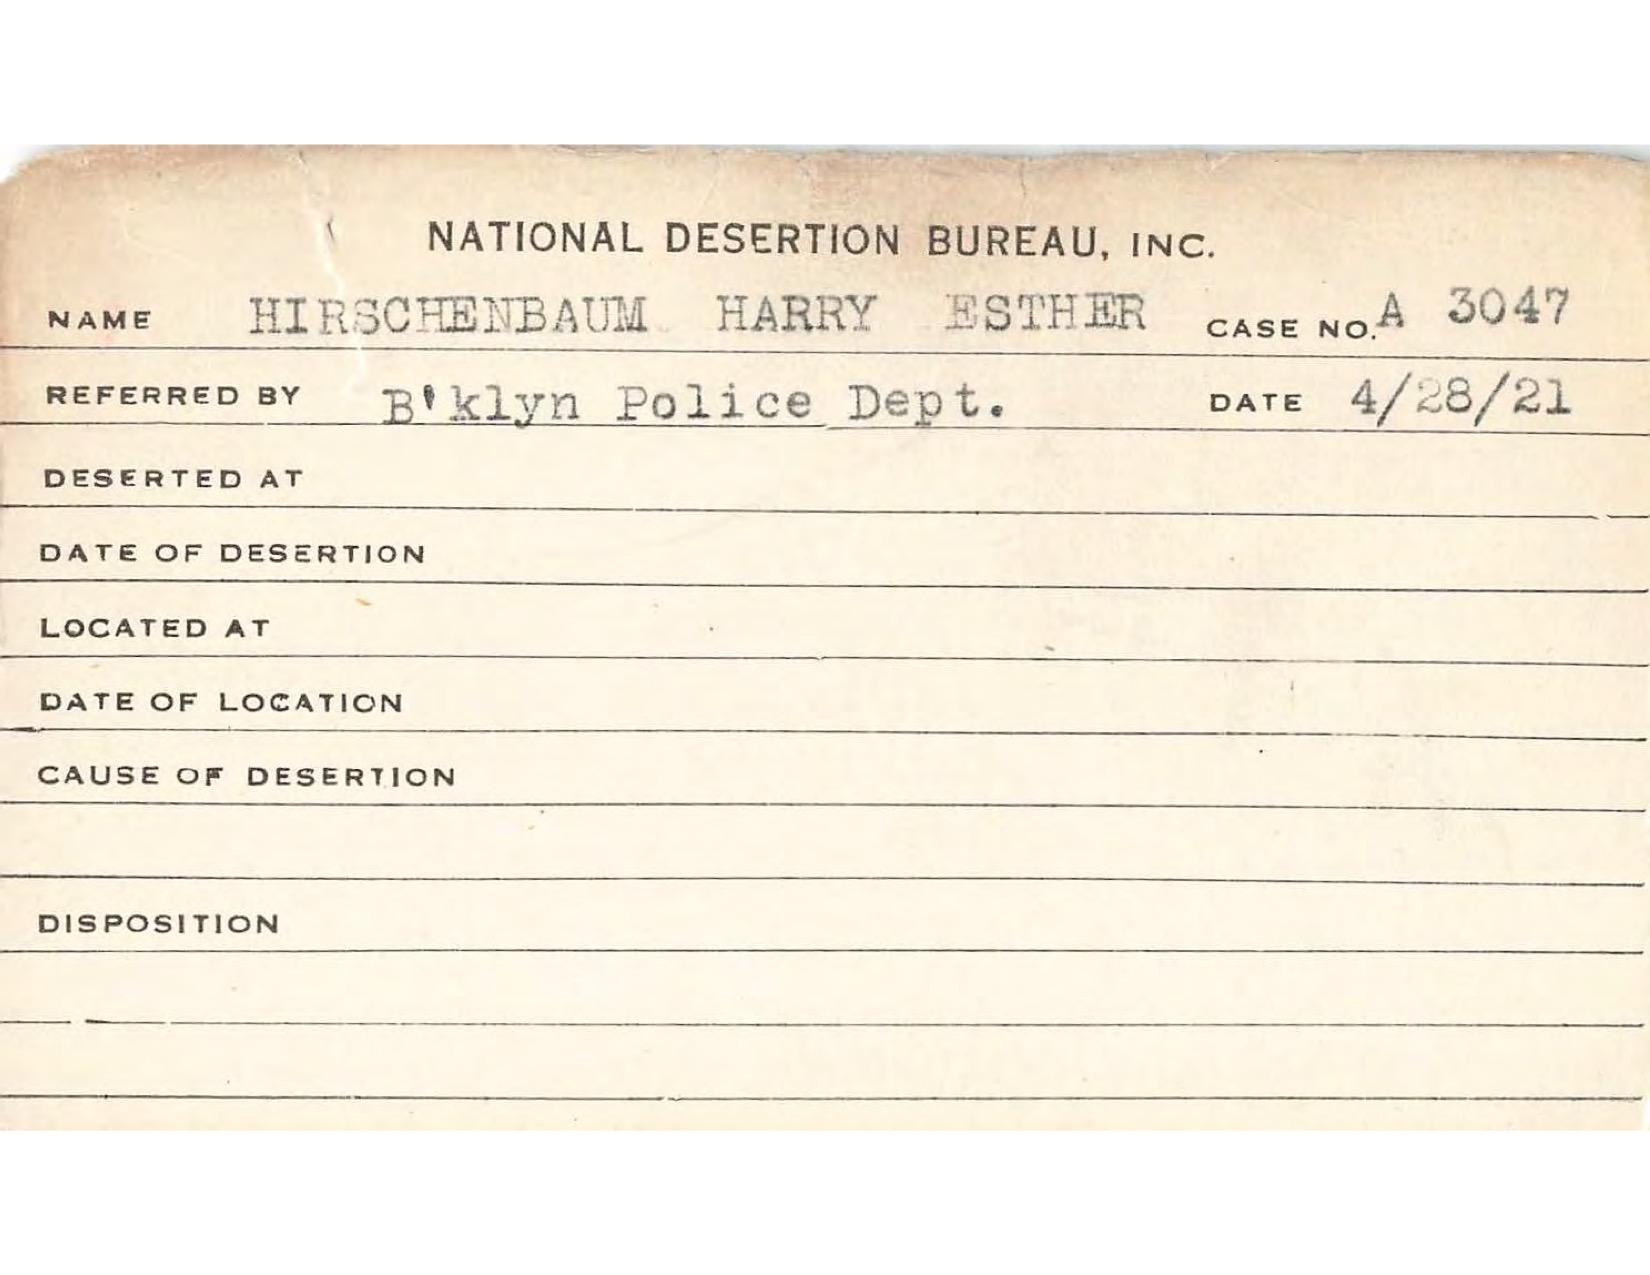 NATIONAL DESERTION BUREAU, INC.
NAME HIRSCHENBAUM HARRY ESTHER CASE NO. A 3047
REFERRED BY B'klyn Police Dept. DATE 4/28/21
DESERTED AT
DATE OF DESERTION
LOCATED AT
DATE OF LOCATION
CAUSE OF DESERTION
DISPOSITION